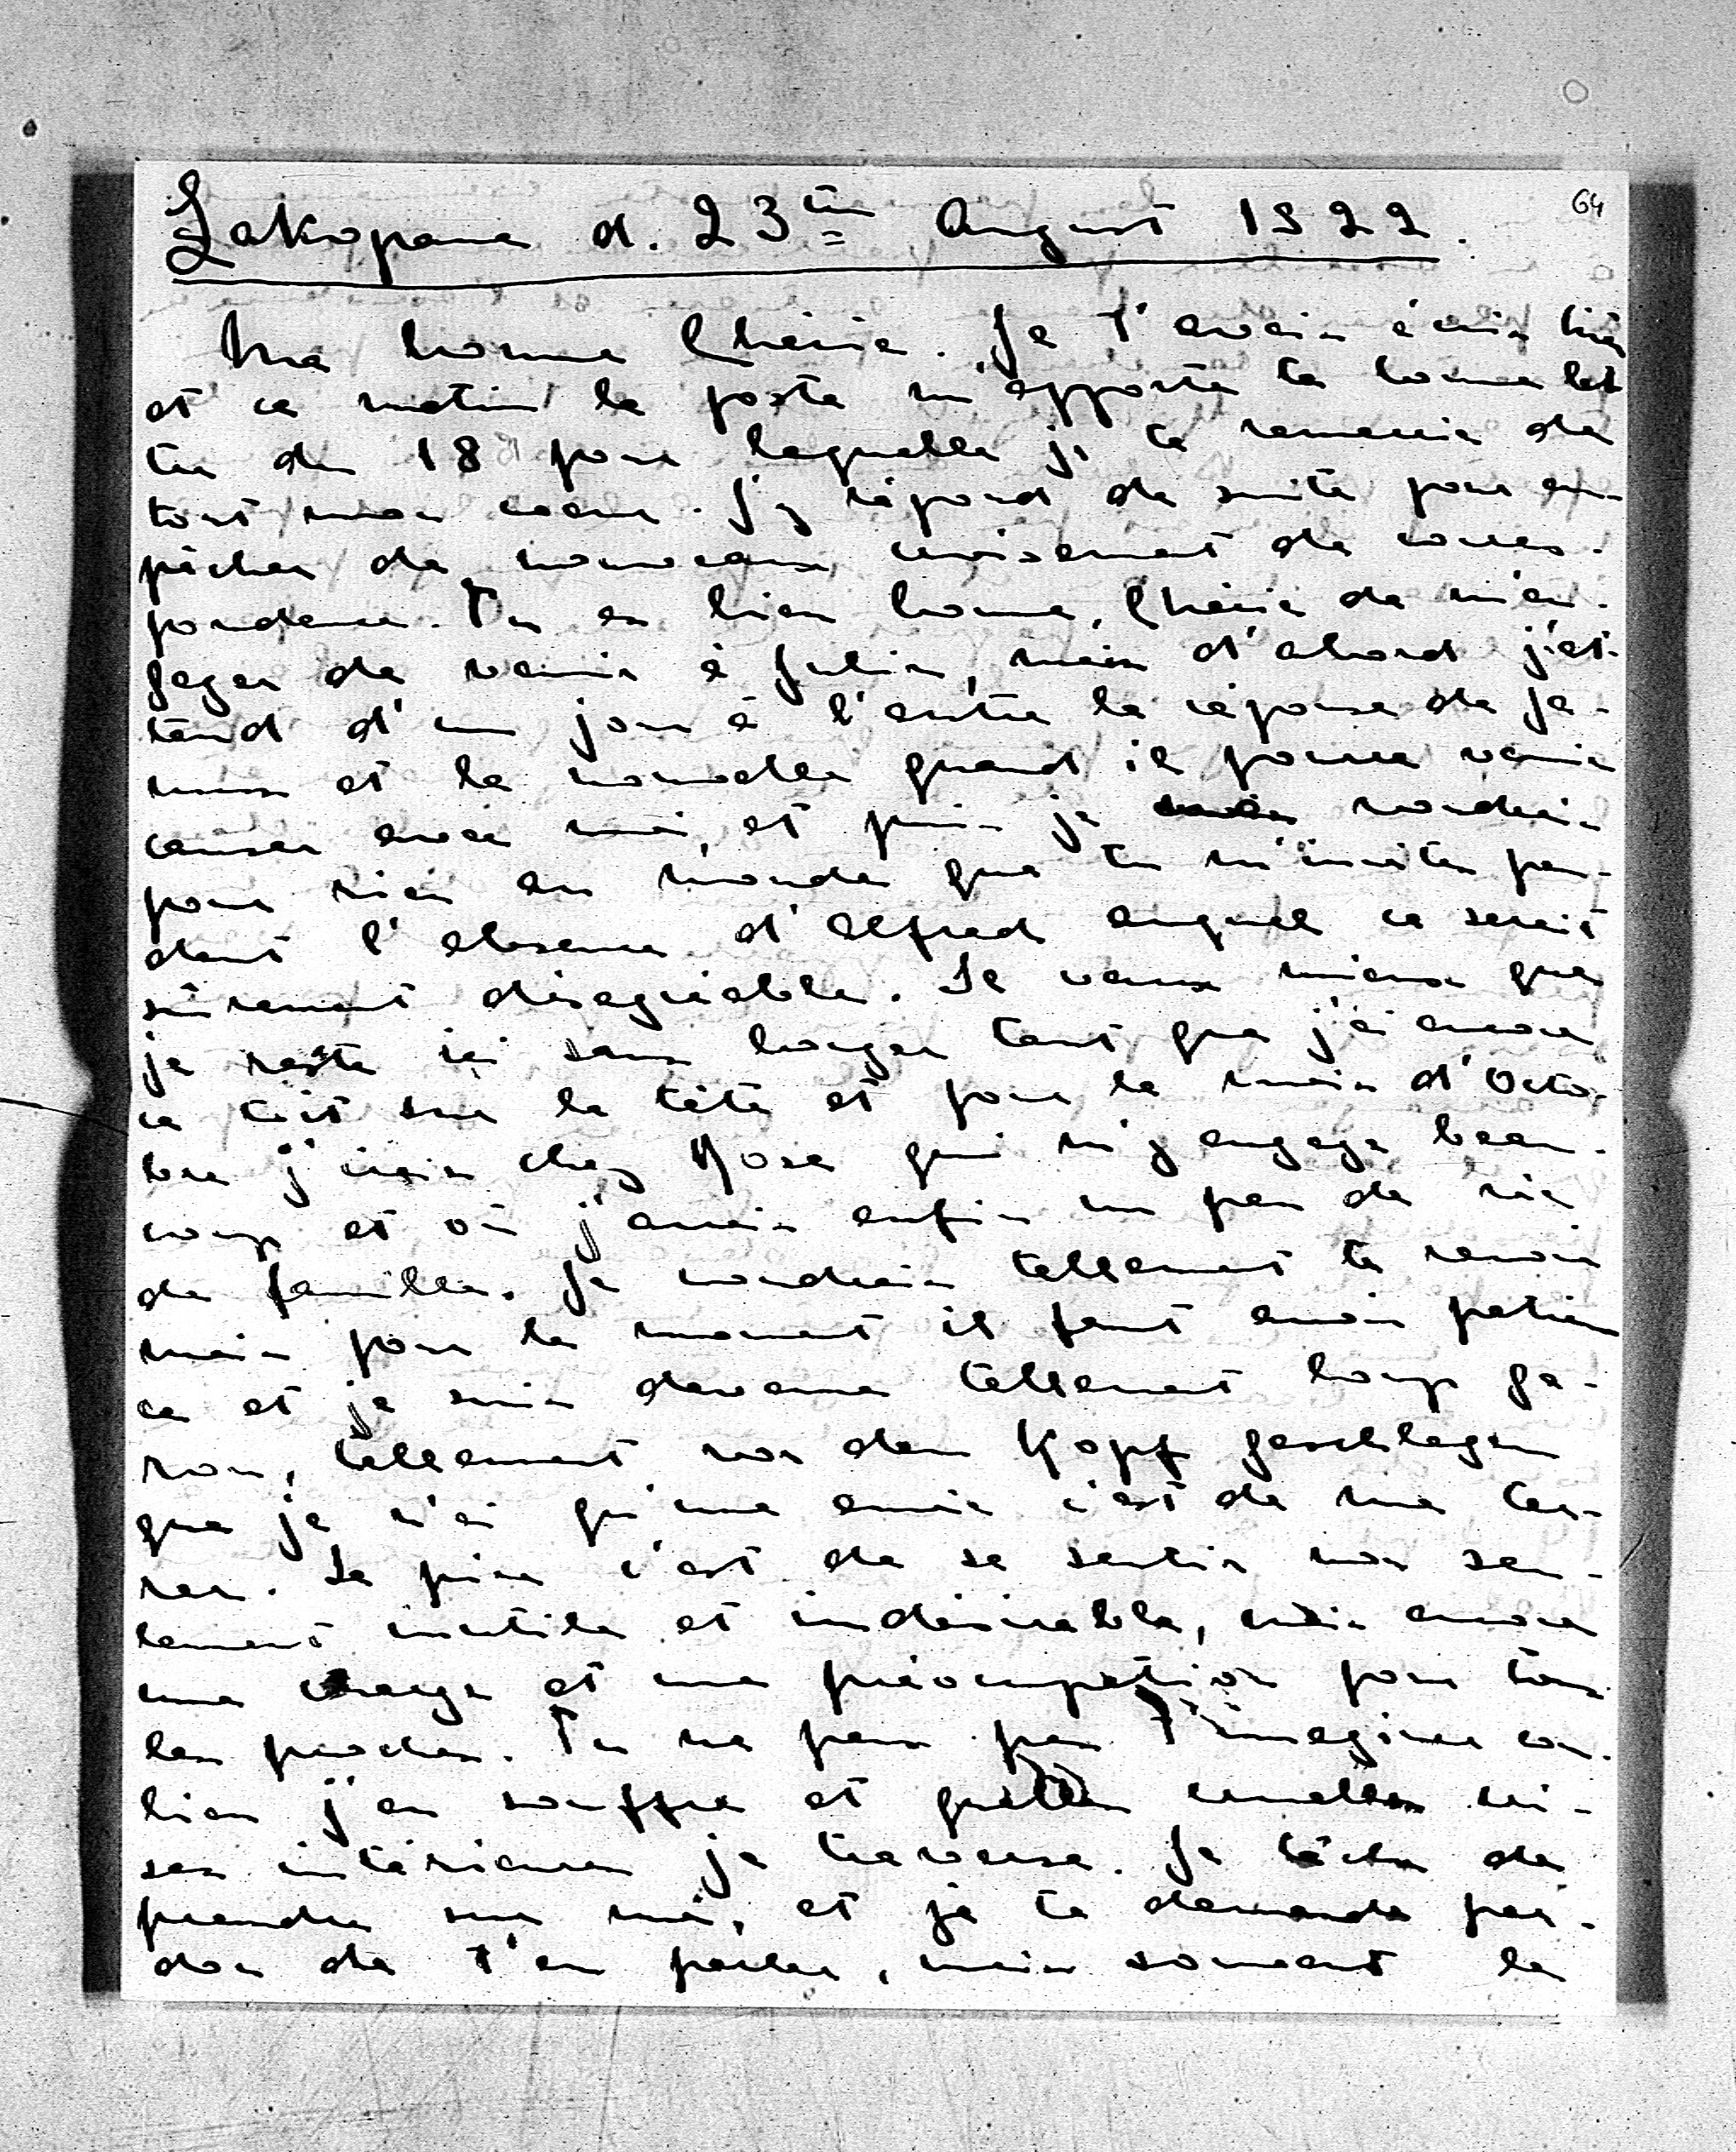 64
Zakopane d. 23ten August 1922.
Ma bonne Chérie. Je t'avais écris hier
et ce matin la poste m'apporte ta bonne let
tre du 18 pour laquelle je te remercie de
tout mon coeur. J'y répond de suite pour em-
pêcher de nouveaux croisement de corres-
pondance. Tu es bien bonne, Chérie de m'en-
gager de venir à Julin, mais d'abord j'at-
tend d'un jour à l'autre la réponse de Ja-
nusz et la nouvelle quand il pourra venir
causer avec moi et puis je voudrais
pour rien au monde que tu m'invites pen-
dant l'absence d'Alfred auquel ce serait
sûrement désagréable. Il vaux mieux que
je reste ici sans bouger tant que j'ai encore
ce toit sur la tête et pour le mois d'Octo-
bre j'irais chez Rose qui m'y engage beau-
coup et où j'aurais enfin un peu de vie
de famille. Je voudrais tellement te revoir
mais pour le moment il faut avoir patien
ce et je suis devenue tellement loup ga-
rou, tellement vor den Kopf geschlagen
que je n'ai qu'une envie c'est de me ter-
rer. Le pire c'est de se sentir non seu-
lement inutile et indésirable, mais encore
une charge et une préocupation pour tous
les proches. Tu ne peux pas t'imaginer com-
bien j'en souffre et quelles cruelles cri-
ses intérieures je traverse. Je tâche de
prendre sur moi, et je te demande par-
don de t'en parler, mais souvent le